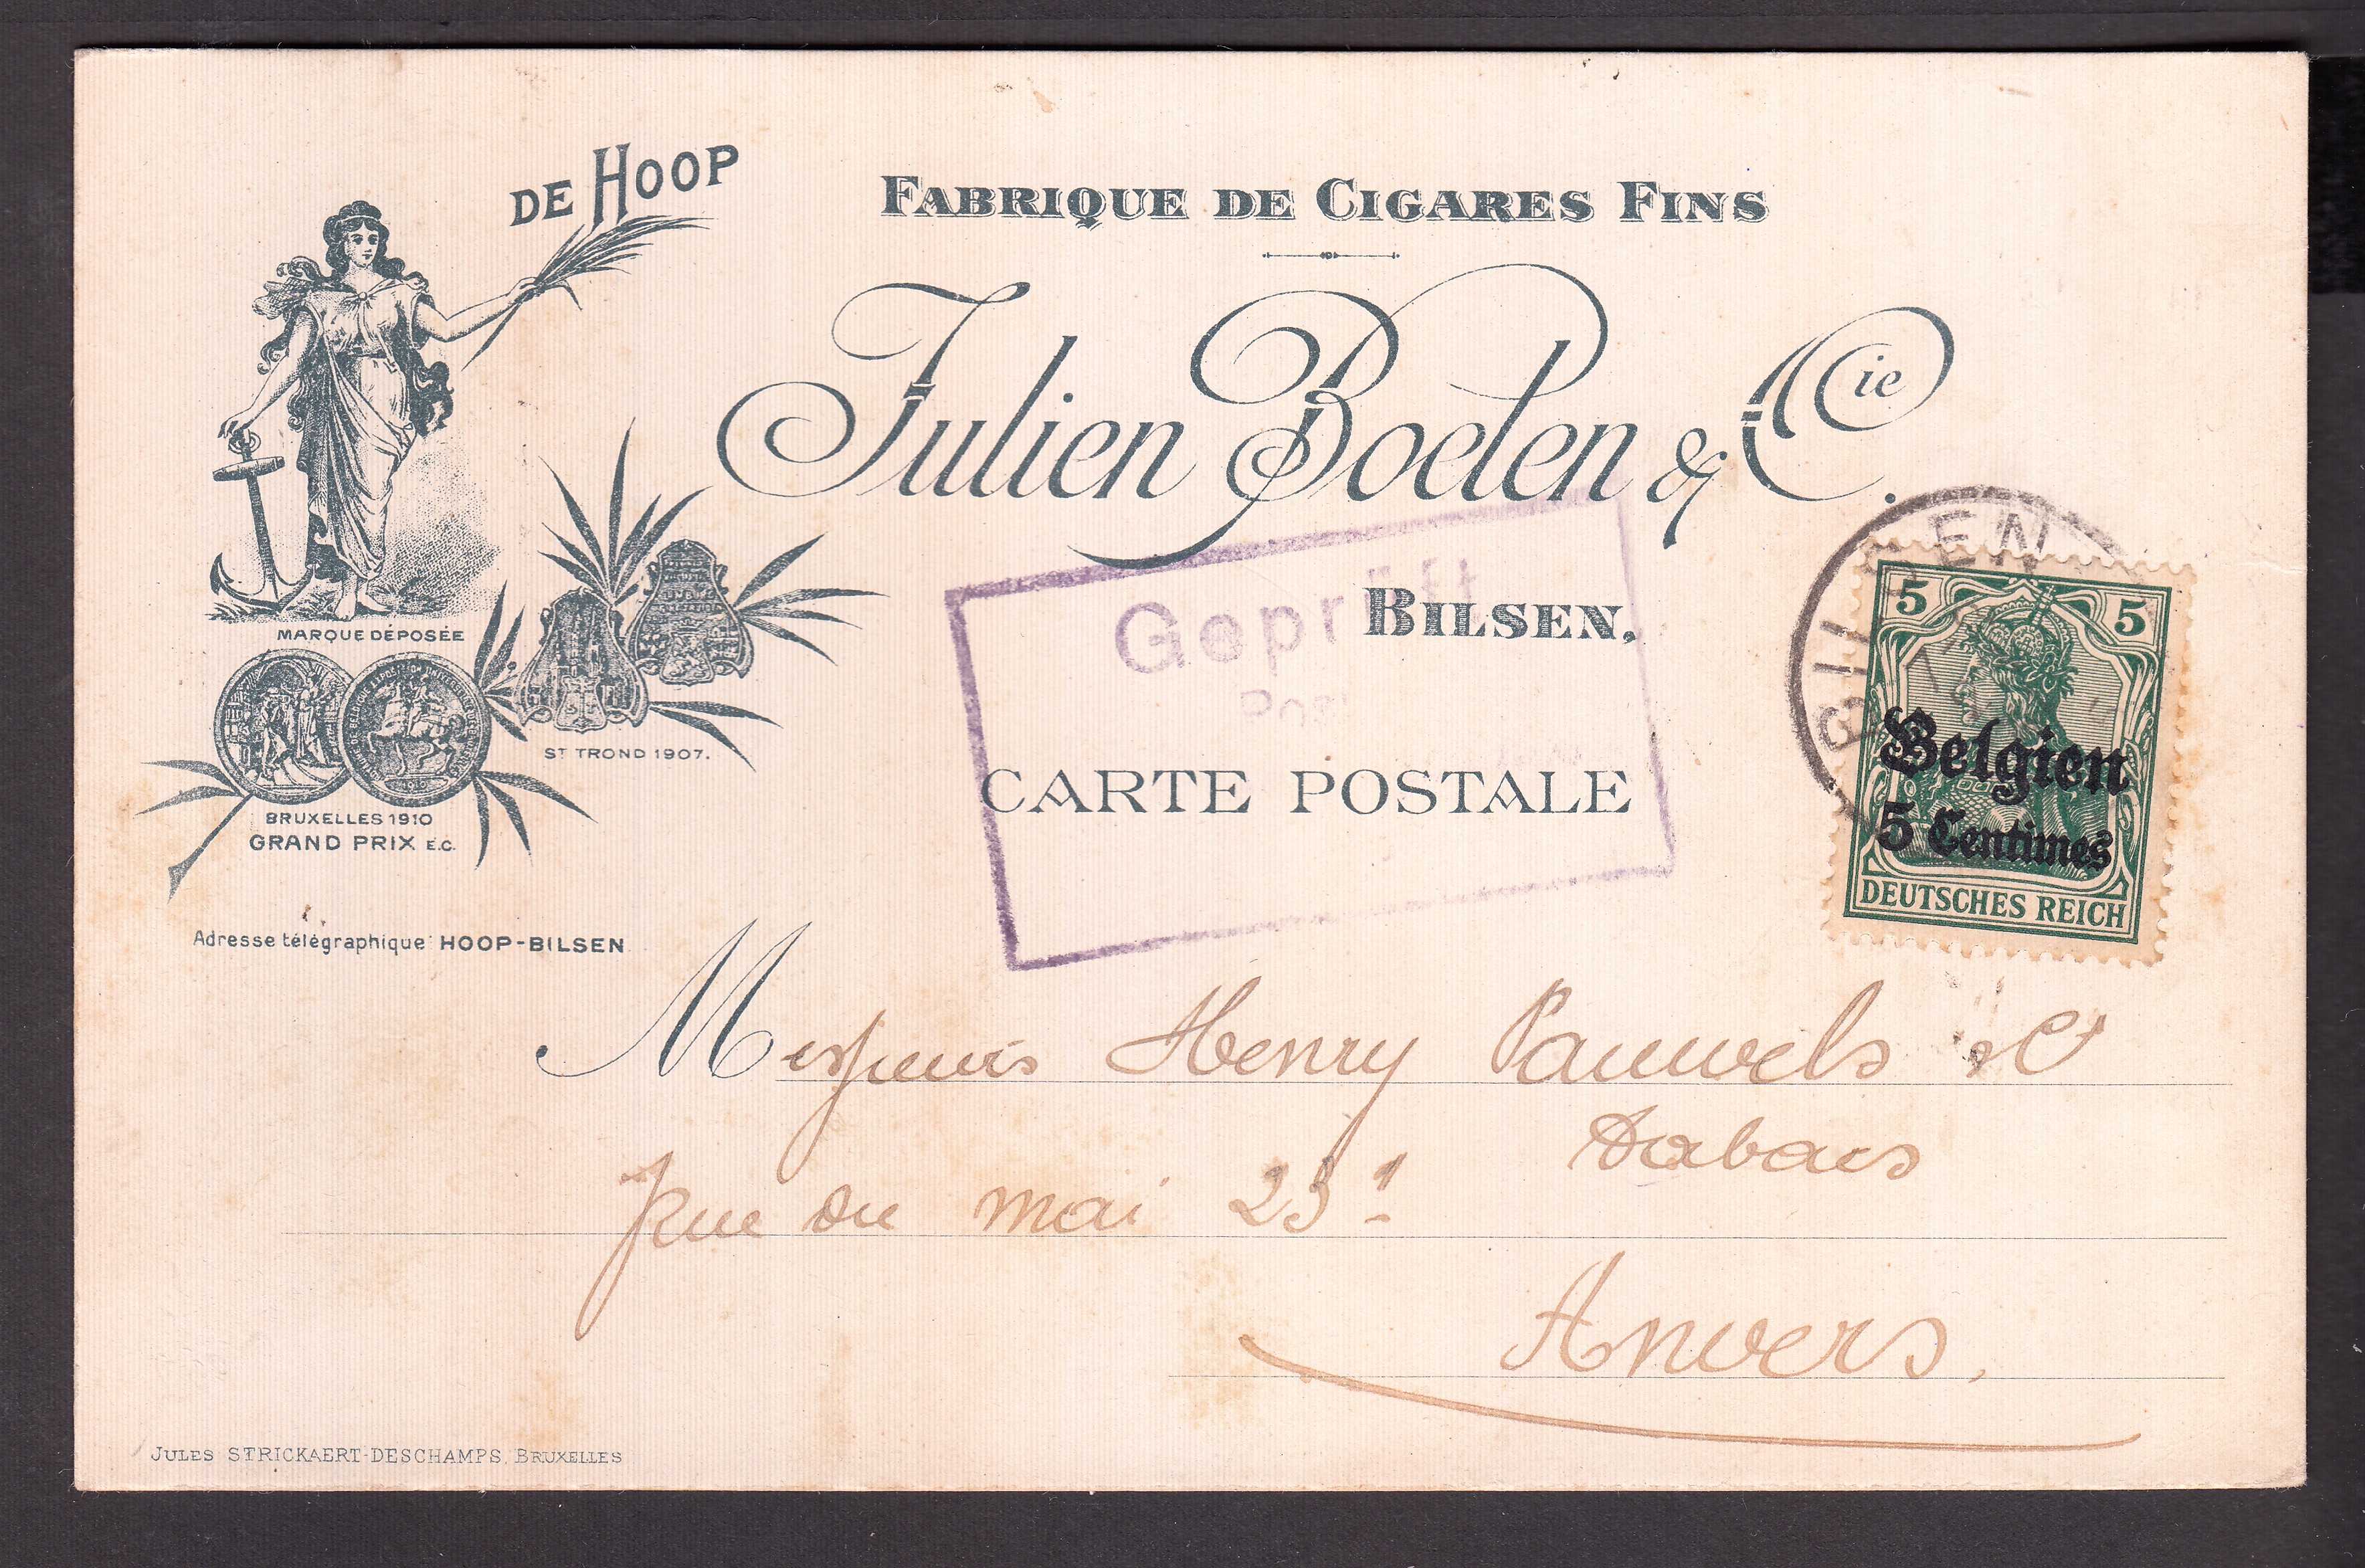 DE HOOP
FABRIQUE DE CIGARES FINS
Julien Boelen & Cie.
BILSEN.
MARQUE DÉPOSÉE
ST TROND 1907.
BRUXELLES 1910
GRAND PRIX E.C.
Adresse télégraphique HOOP-BILSEN
Geprüft
CARTE POSTALE
BILSEN
5 5
Belgien
5 Centimes
DEUTSCHES REICH
Messieurs Henry Pauwels & Cº
Tabacs
Rue du mai 23
Anvers.
JULES STRICKAERT-DESCHAMPS, BRUXELLES